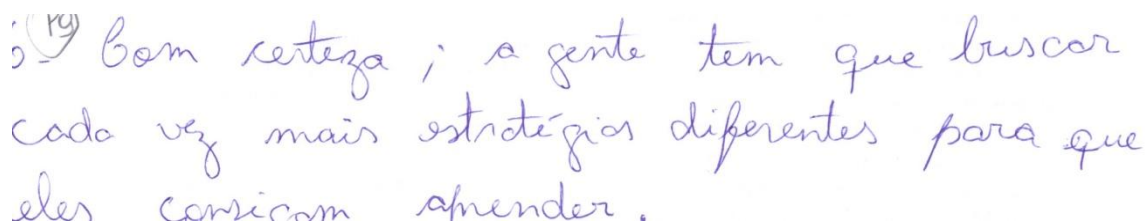 6- P9 Com certeza ; a gente tem que buscar
cada vez mais estratégias diferentes para que
eles consigam aprender.